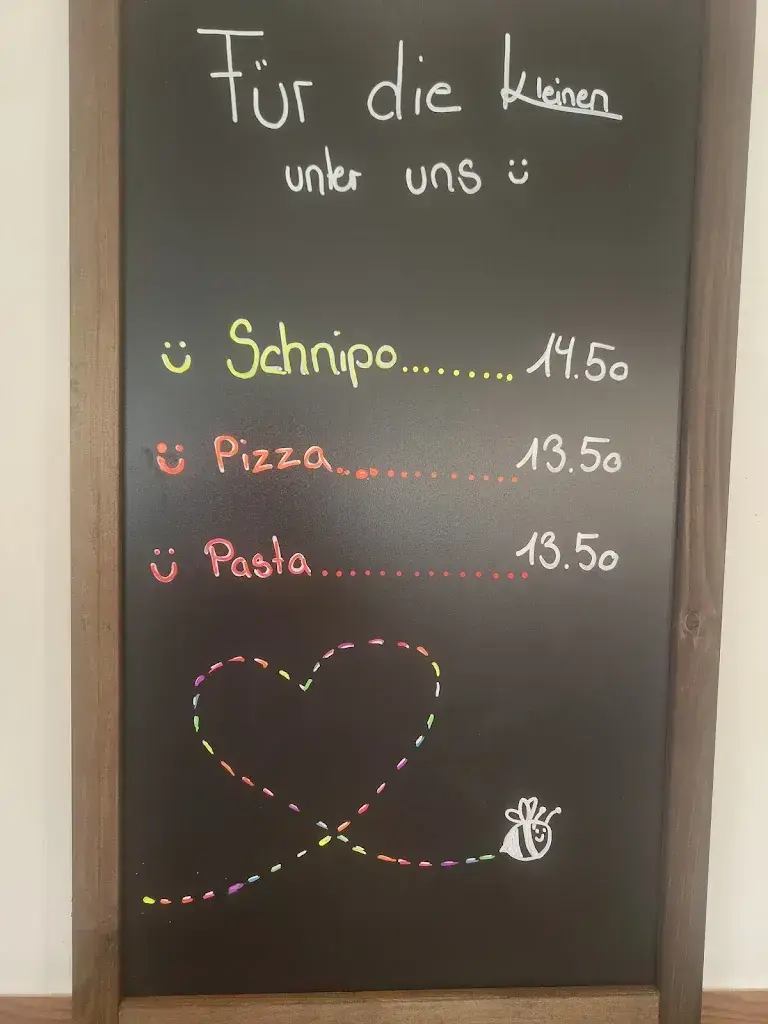 Für die kleinen
unter uns ü
Schnipo......... 14.50
Pizza............. 13.50
Pasta................ 13.50